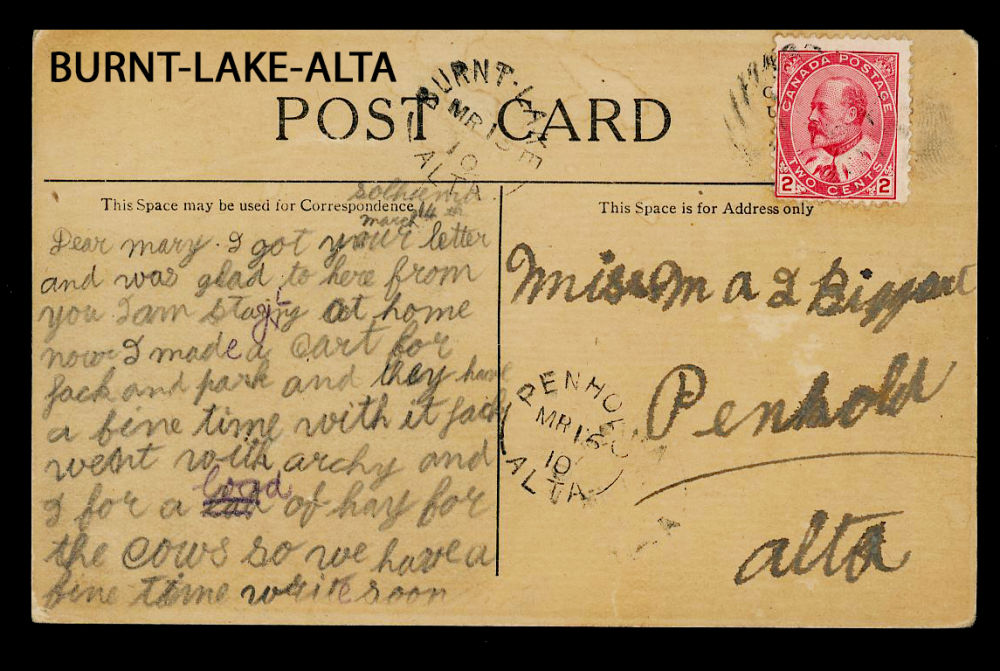 BURNT-LAKE-ALTA
POST CARD
BURNT-LAKE
MR 15
10
ALTA
CANADA POSTAGE
TWO CENTS
2 2
This Space may be used for Correspondence
march 14 th
This Space is for Address only
Dear mary. I got your letter
and was glad to here from
you I am staying at home
now I made a cart for
Jack and park and they have
a fine time with it Jack
went with archy and
I for a load of hay for
the cows so we have a
fine time write soon
Miss M a I Biggart
Penhold
alta
PENHOLD
MR 16
10
ALTA